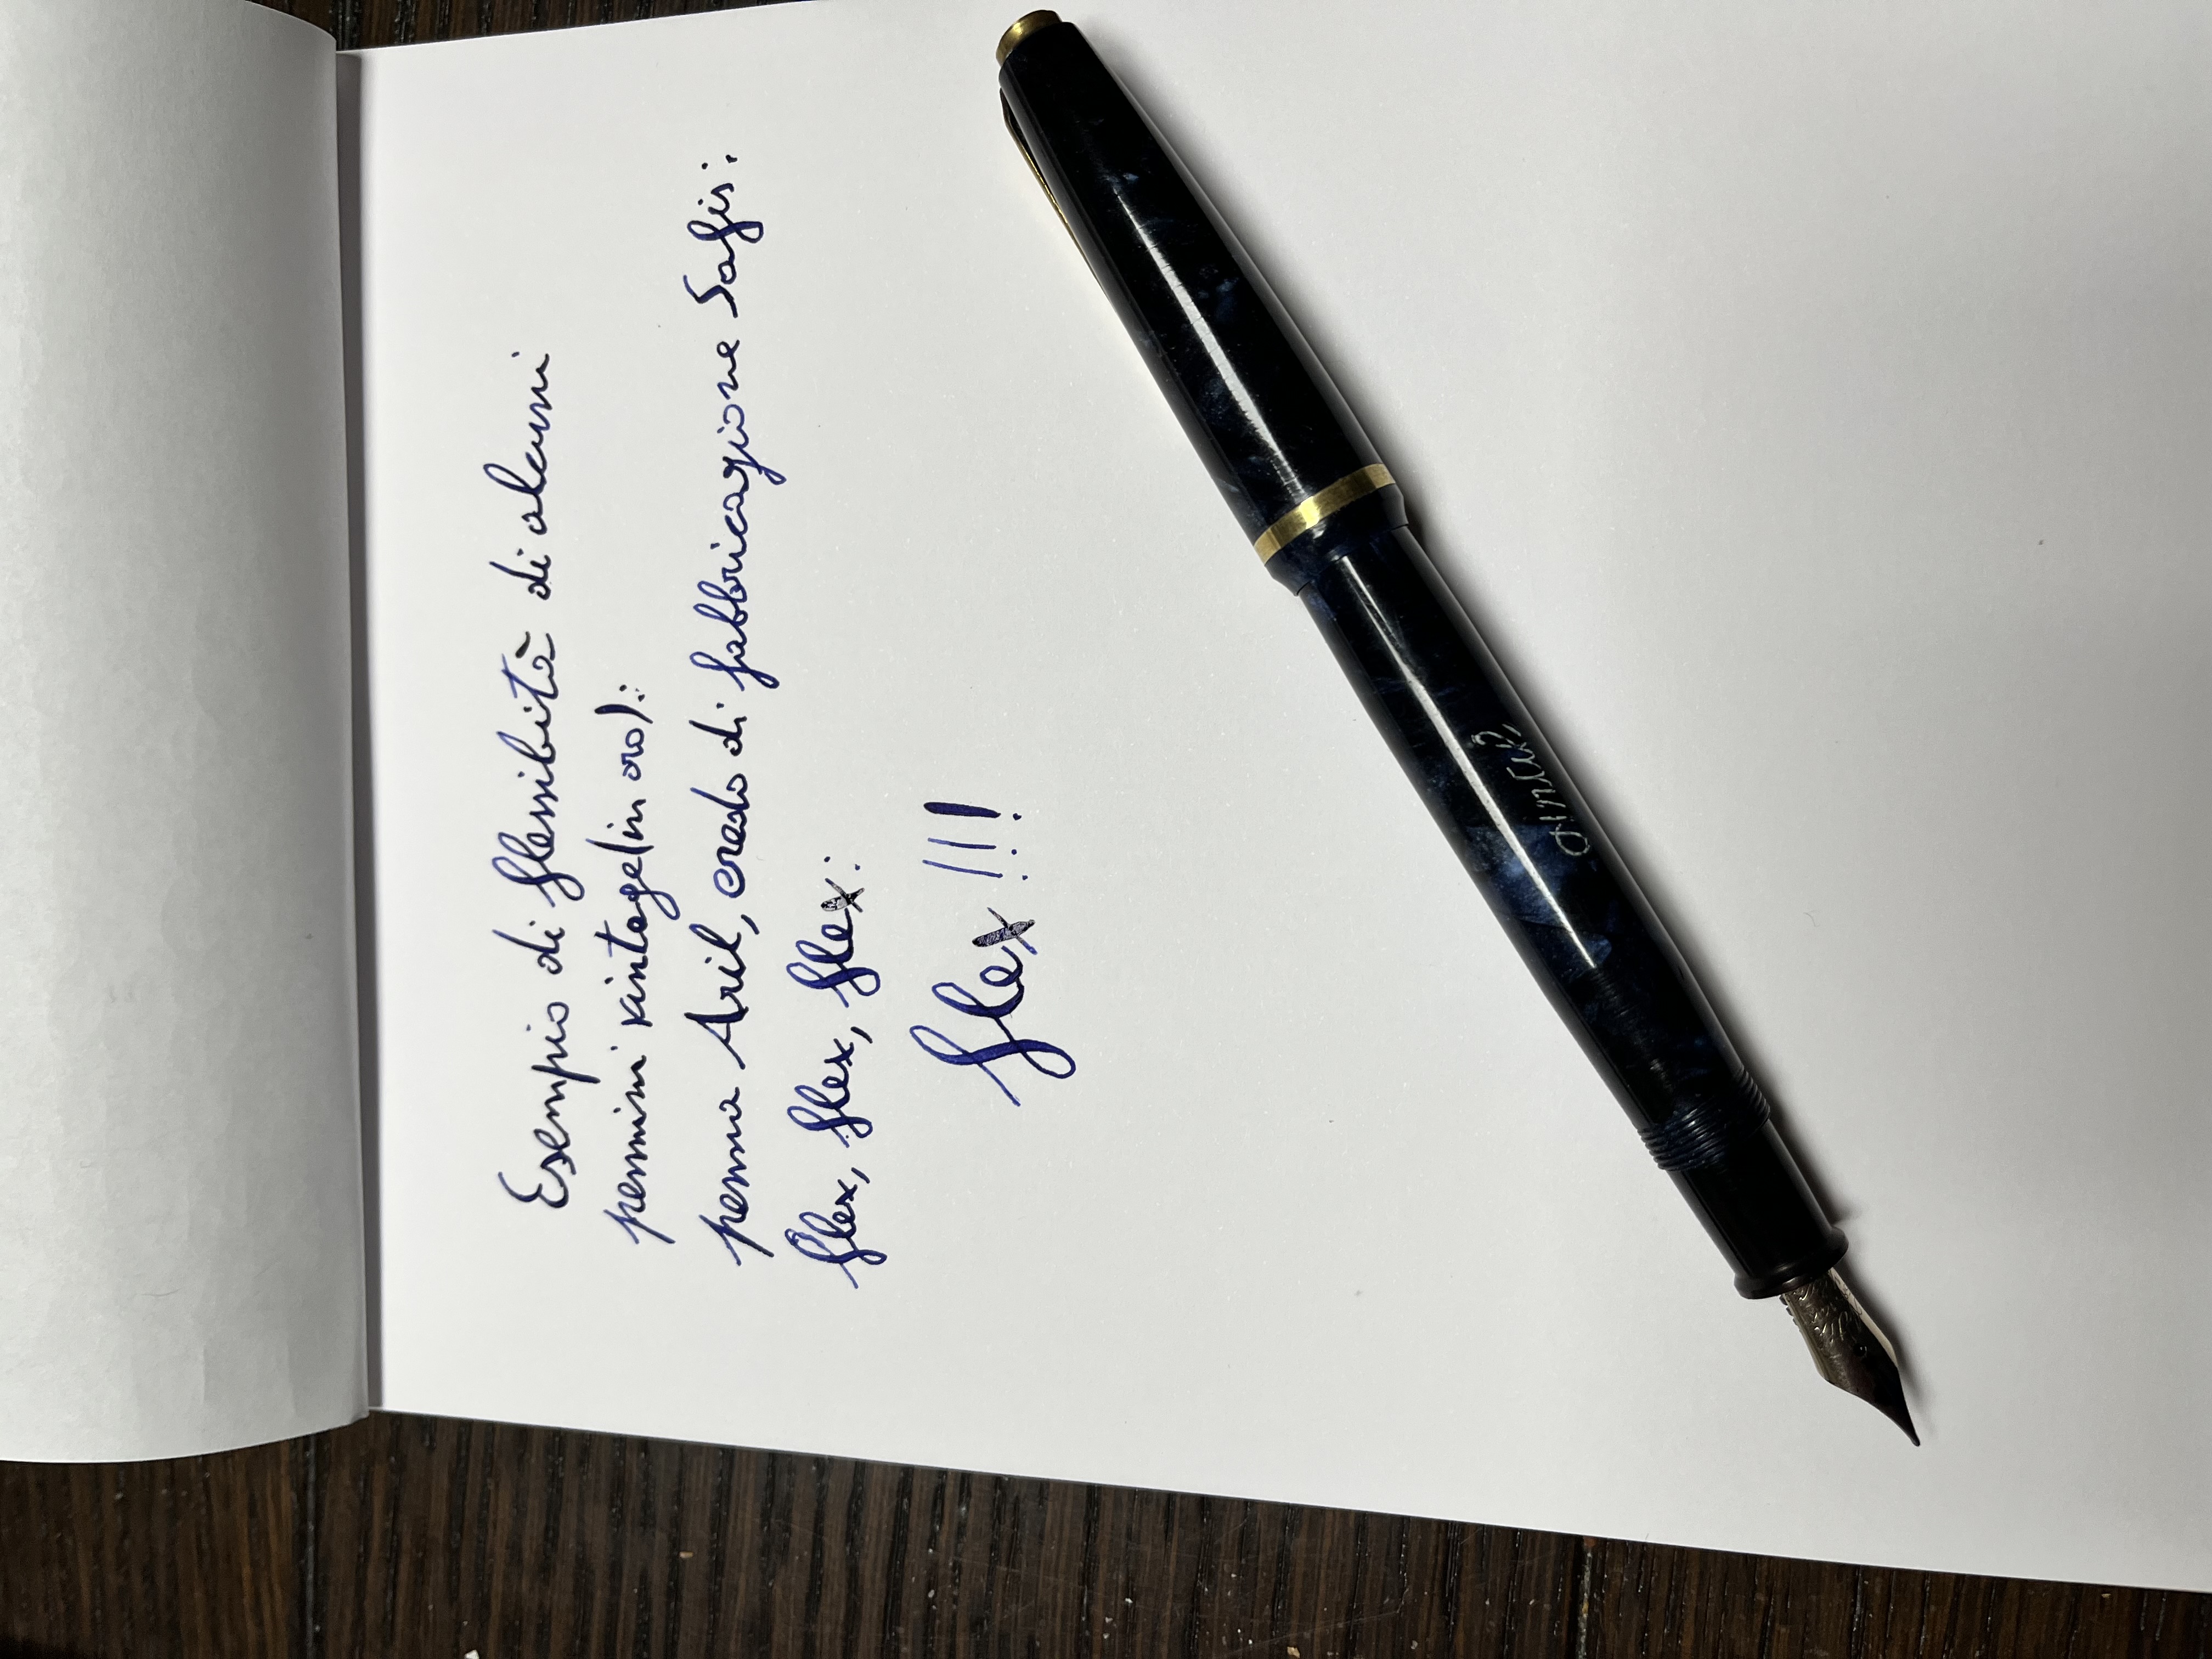 Esempio di flessibità di alcuni
pennini vintage (in oro):
penna Aril, credo di fabbricazione Safis:
flex, flex, flex:
flex !!!!